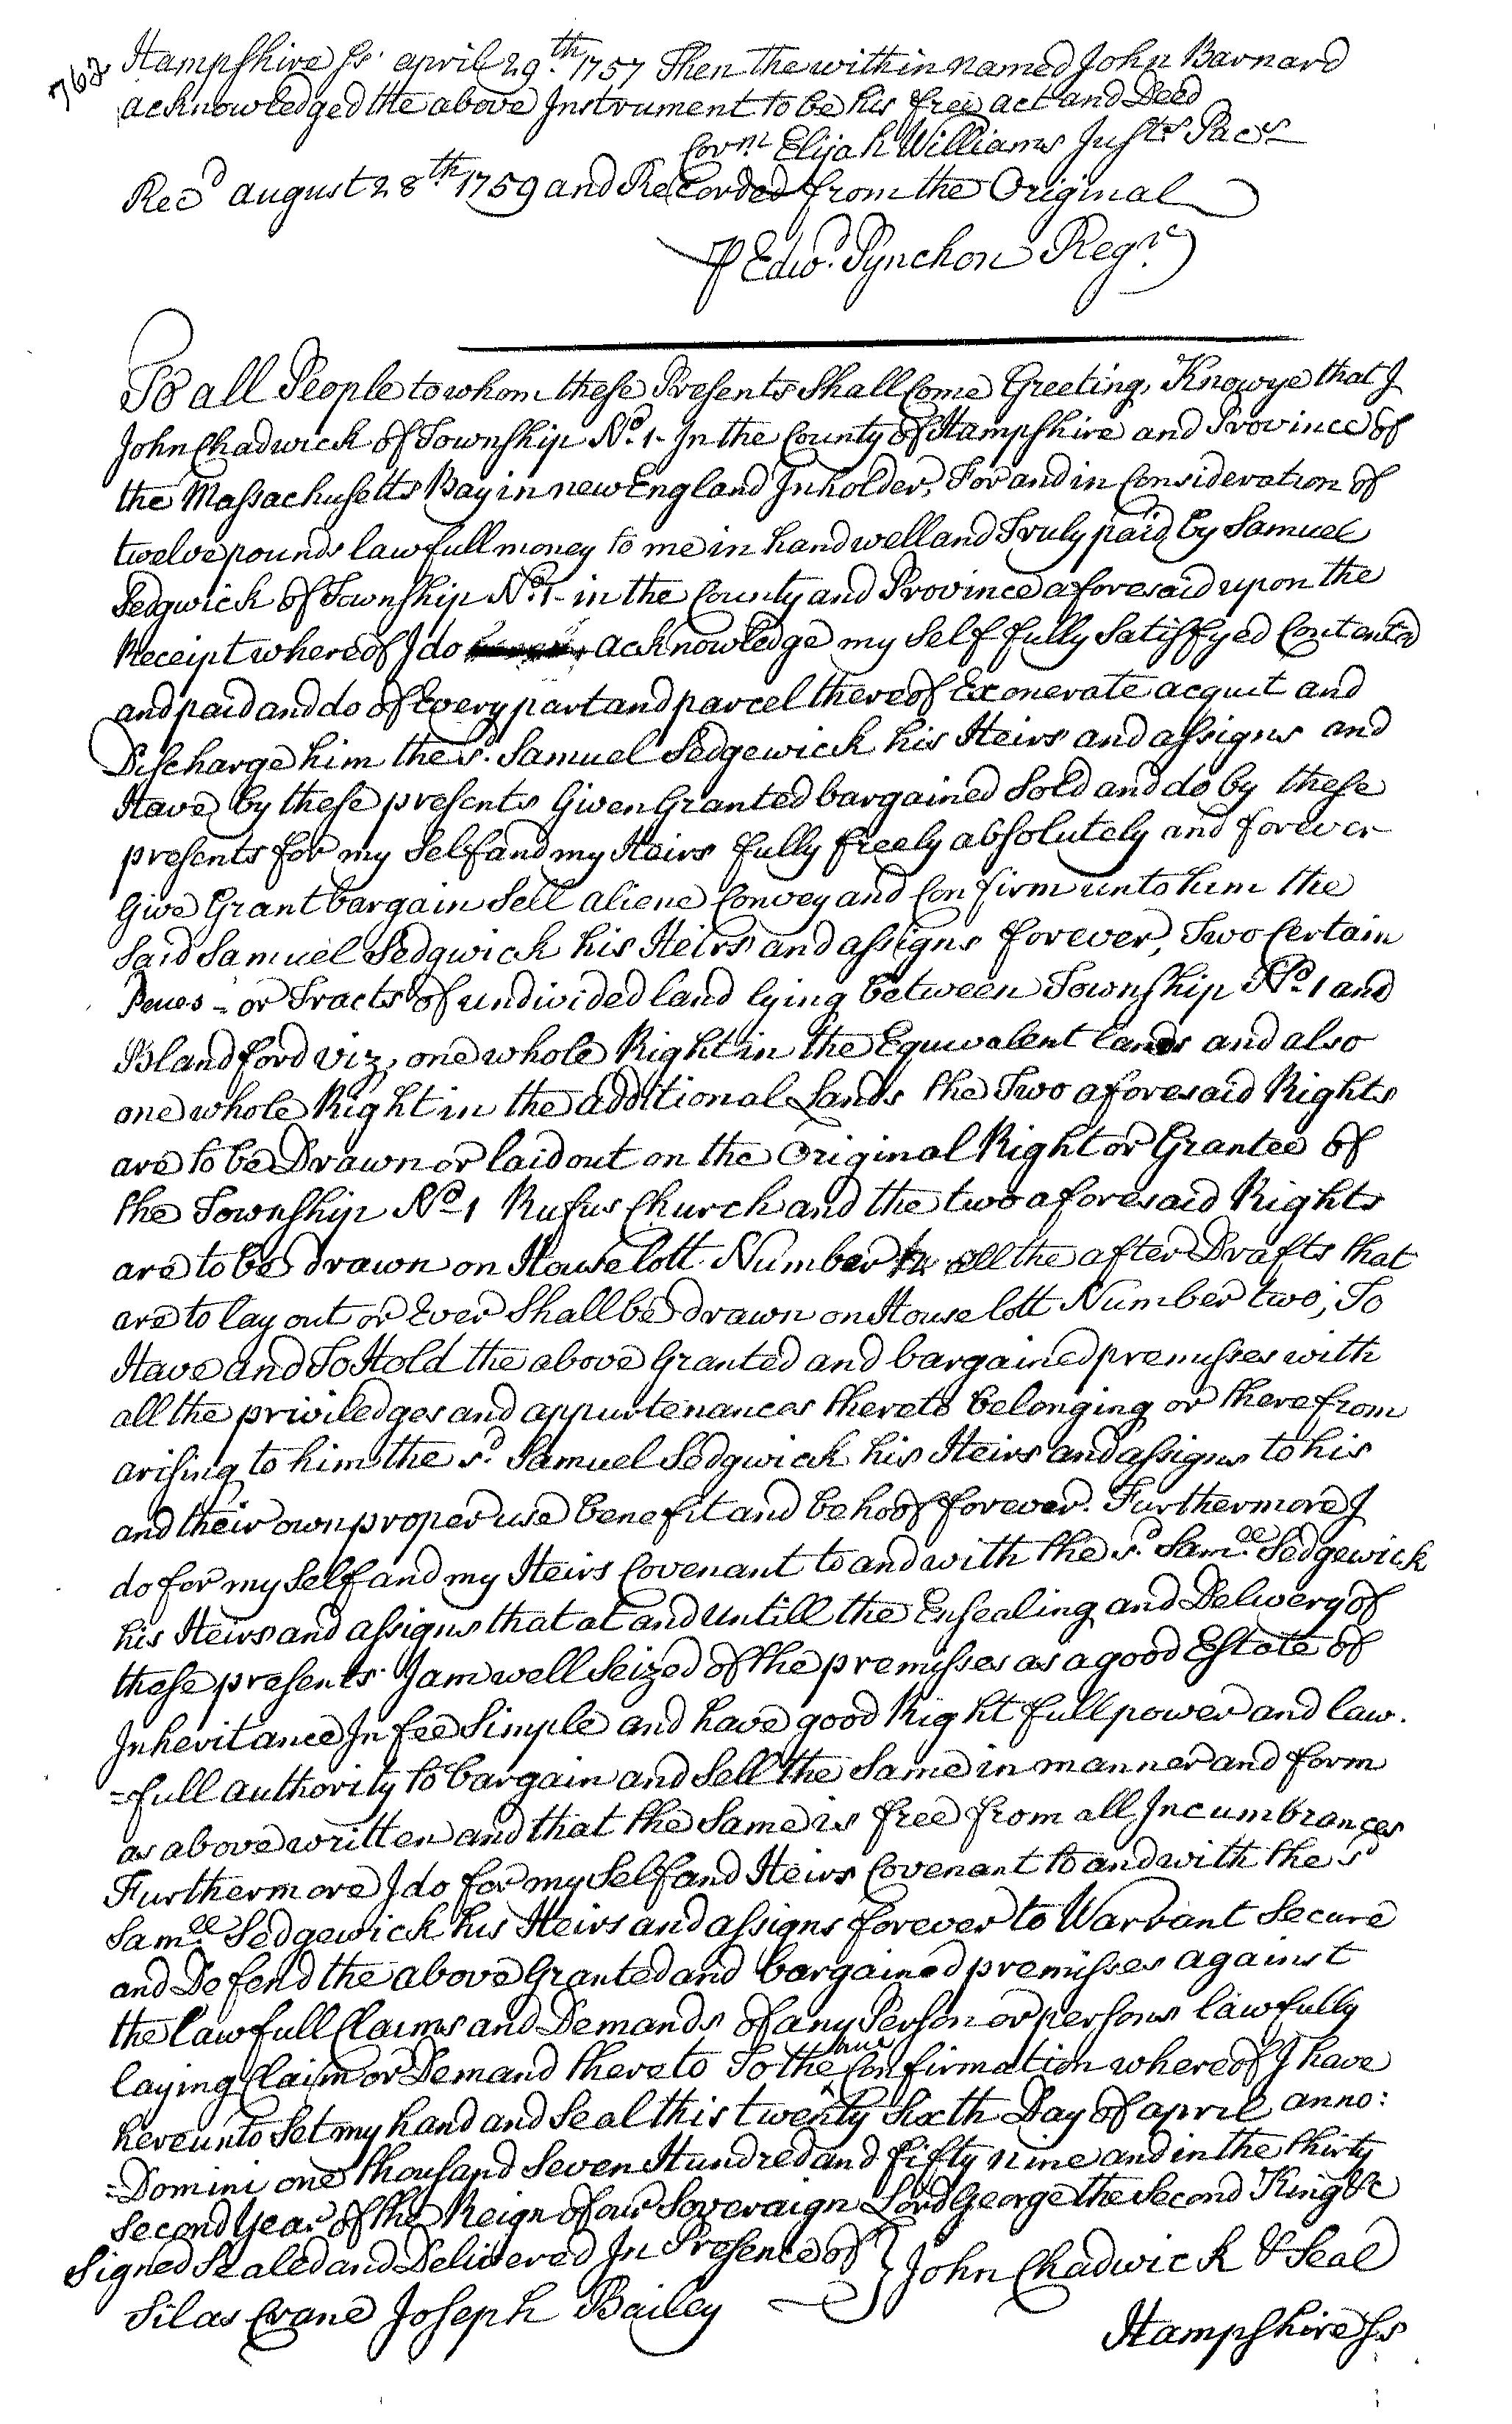 762
Hampshire ss. april 29th. 1757 Then the within named John Barnard
acknowledged the above Instrument to be his free act and Deed
Corm. Elijah Williams Justs Pacs
Recd august 28th. 1759 and Recorded from the Original
⅌ Edwd. Pynchon Regr.
To all People to whom these Presents Shall Come Greeting, Know ye that I
John Chadwick of Township No. 1 - In the County of Hampshire and Province of
the Massachusetts Bay in new England Inholder, For and in Consideration of
twelve pounds lawfull money to me in hand well and Truly paid by Samuel
Sedgwick of Township No. 1 - in the County and Province aforesaid upon the
Receipt whereof I do acknowledge my Self fully Satisfyed Contented
and paid and do of Every part and parcel thereof Exonerate acquit and
Discharge him the sd. Samuel Sedgewick his Heirs and assigns and
Have by these presents Given Granted bargained Sold and do by these
presents for my Self and my Heirs fully freely absolutely and forever
Give Grant bargain Sell aliene Convey and Confirm unto him the
Said Samuel Sedgwick his Heirs and assigns forever, Two Certain
Peices - or Tracts of undivided land lying between Township No. 1 and
Blandford viz, one whole Right in the Equivalent lands and also
one whole Right in the additional Lands the Two aforesaid Rights
are to be Drawn or laid out on the Original Right or Grantee of
the Township No. 1 Rufus Church and the two aforesaid Rights
are to be drawn on House lott Number all the after Drafts that
are to lay out or Ever Shall be drawn on House lott Number two, To
Have and To Hold the above Granted and bargained premisses with
all the priviledges and appurtenances thereto belonging or therefrom
arising to him the sd. Samuel Sedgwick his Heirs and assigns to his
and their own proper use benefit and behoof forever. Furthermore I
do for my Self and my Heirs Covenant to and with the sd. Samll. Sedgewick
his Heirs and assigns that at and untill the Ensealing and Delivery of
these presents I am well Seized of the premisses as a good Estate of
Inheritance In fee Simple and have good Right full power and law.
=full authority to bargain and Sell the Same in manner and form
as above written and that the Same is free from all Incumbrances
Furthermore I do for my Self and Heirs Covenant to and with the sd
Samll. Sedgewick his Heirs and assigns forever to Warrant Secure
and Defend the above Granted and bargained premisses against
the lawfull Claims and Demands of any Person or persons lawfully
laying Claim or Demand thereto To the true Confirmation whereof I have
hereunto Set my hand and Seal this twenty Sixth Day of april anno:
=Domini one thousand Seven Hundred and fifty nine and in the thirty
Second Year of the Reign of our Soveraign Lord George the Second King &c
Signed Sealed and Delivered In Presence of } John Chadwick & Seal
Silas Crane Joseph Bailey
Hampshire ss